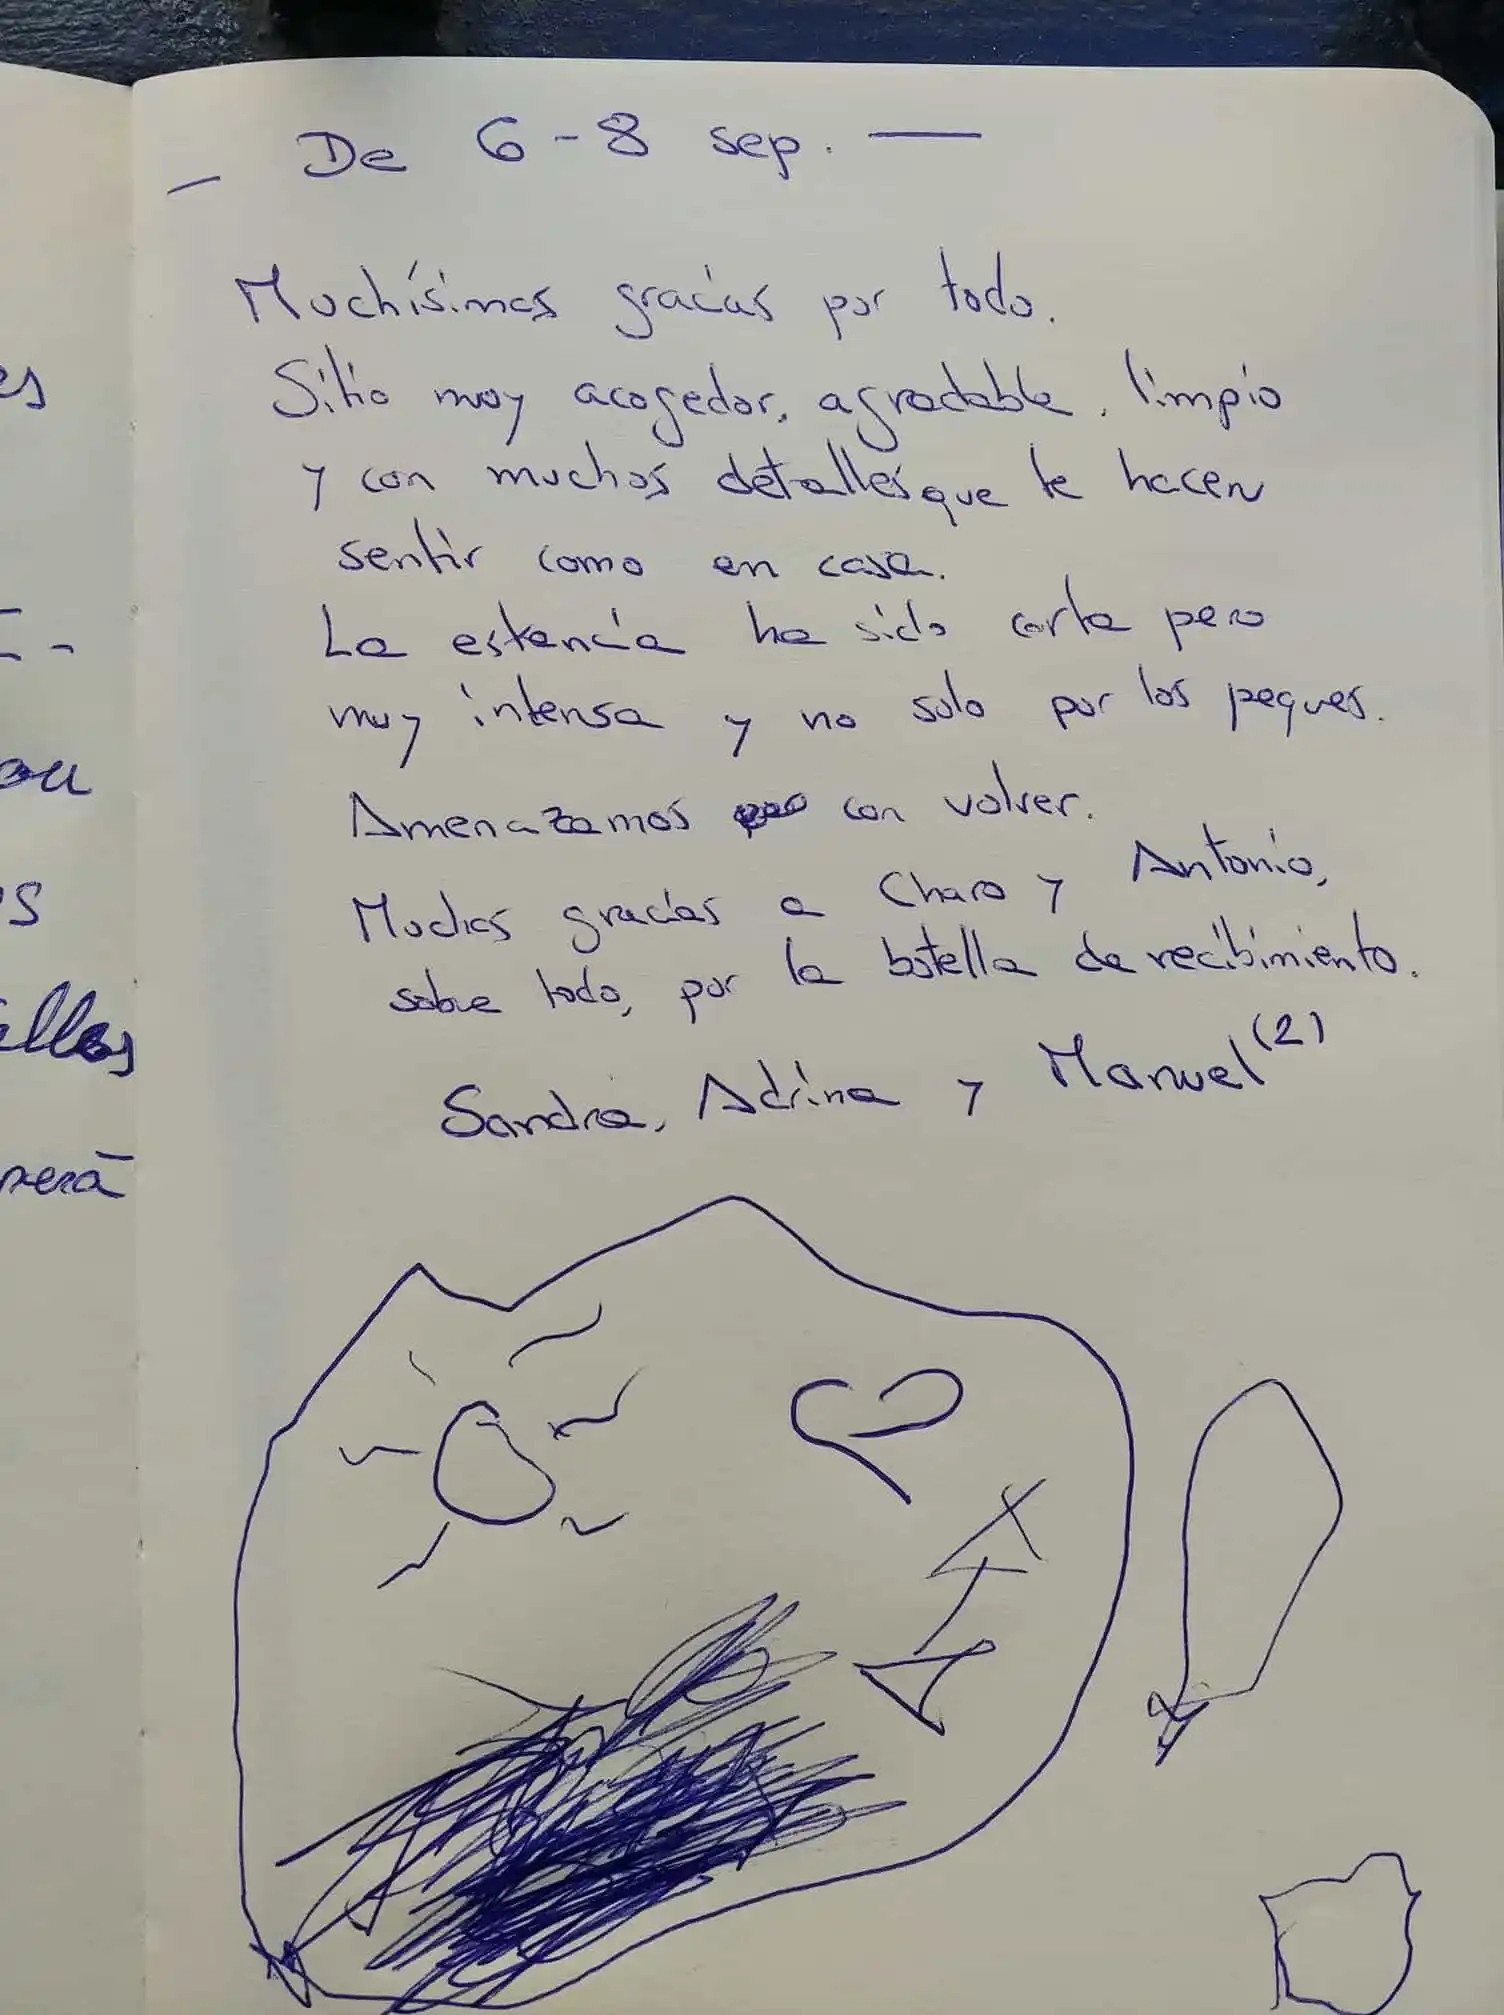 - De 6-8 sep. —
Muchísimas gracias por todo.
Sitio muy acogedor, agradable, limpio
y con muchos detalles que te hacen
sentir como en casa.
La estancia ha sido corta pero
muy intensa y no solo por los peques.
Amenazamos con volver.
Muchas gracias a Charo y Antonio,
sobre todo, por la botella de recibimiento.
Sandra, Adrina y Manuel (2)
es
ou
s
será